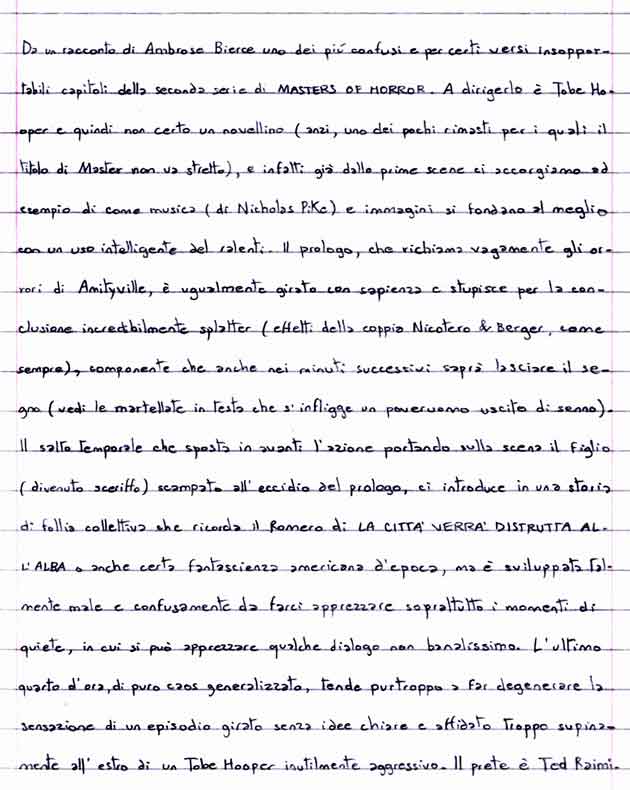 Da un racconto di Ambrose Bierce uno dei più confusi e per certi versi insoppor-
tabili capitoli della seconda serie di MASTERS OF HORROR. A dirigerlo è Tobe Ho-
oper e quindi non certo un novellino (anzi, uno dei pochi rimasti per i quali il
titolo di Master non va stretto), e infatti già dalle prime scene ci accorgiamo ad
esempio di come musica (di Nicholas Pike) e immagini si fondano al meglio
con un uso intelligente del ralenti. Il prologo, che richiama vagamente gli or-
rori di Amityville, è ugualmente girato con sapienza e stupisce per la con-
clusione incredibilmente splatter (effetti della coppia Nicotero & Berger, come
sempre), componente che anche nei minuti successivi saprà lasciare il se-
gno (vedi le martellate in testa che s'infligge un pover uomo uscito di senno).
Il salto temporale che sposta in avanti l'azione portando sulla scena il figlio
(divenuto sceriffo) scampato all'eccidio del prologo, ci introduce in una storia
di follia collettiva che ricorda il Romero di LA CITTA' VERRA' DISTRUTTA AL-
L'ALBA o anche certa fantascienza americana d'epoca, ma è sviluppata tal-
mente male e confusamente da farci apprezzare soprattutto i momenti di
quiete, in cui si può apprezzare qualche dialogo non banalissimo. L'ultimo
quarto d'ora, di puro caos generalizzato, tende purtroppo a far degenerare la
sensazione di un episodio girato senza idee chiare e affidato troppo supina-
mente all'estro di un Tobe Hooper inutilmente aggressivo. Il prete è Ted Raimi.